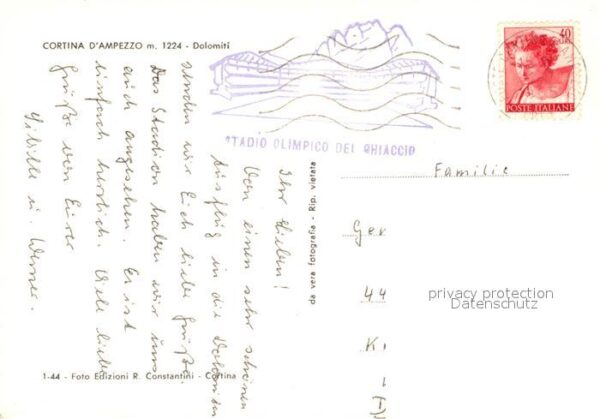 CORTINA D'AMPEZZO m. 1224 - Dolomiti
STADIO OLIMPICO DEL GHIACCIO
40
POSTE ITALIANE
Ihr Lieben!
Von einem sehr schönen
Ausflug in die Dolomiten
senden wir Euch liebe Grüße.
Das Stadion haben wir uns
auch angesehen. Es ist
einfach herrlich. Viele liebe
Grüße von Eurer
Sibille u. Werner.
da vera fotografia - Rip. vietata
Familie
Ger
44
Ki
privacy protection
Datenschutz
1-44 - Foto Edizioni R. Constantini - Cortina